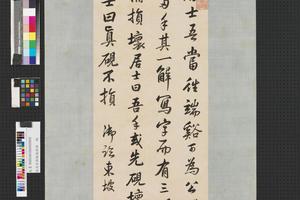 士吾當往端谿可為公
手其一解寫字而有三
損壞居士曰吾手或先硯壞
士曰真硯不損 御臨東坡